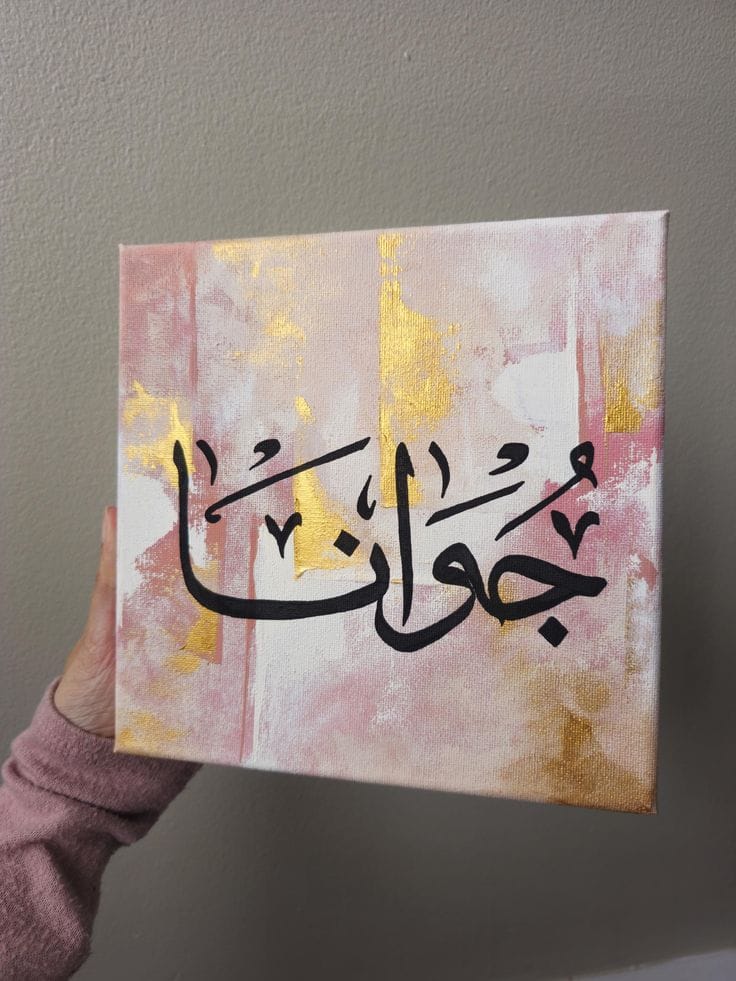 جُوَانَا